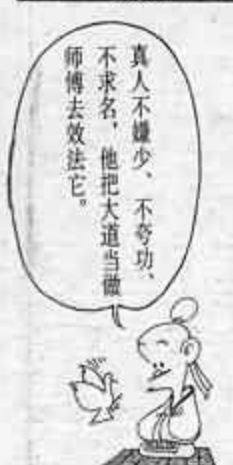 真人不嫌少、不夸功、
不求名，他把大道当做
师傅去效法它。